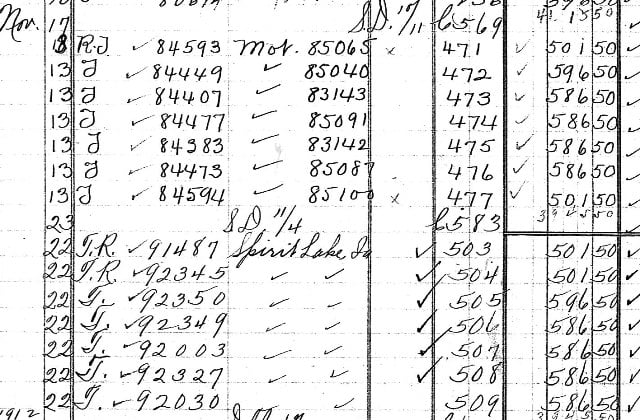 Nov. 17 S.D. 11/11 C 569
13 R.T ✓ 84593 Mot. 85065 x 471 ✓ 501 50
13 T ✓ 84449 ✓ 85040 472 ✓ 596 50
13 T ✓ 84407 ✓ 83143 473 ✓ 586 50
13 T ✓ 84477 ✓ 85091 474 ✓ 586 50
13 T ✓ 84383 ✓ 83142 475 ✓ 586 50
13 T ✓ 84473 ✓ 85087 476 ✓ 586 50
13 T ✓ 84594 ✓ 85100 x 477 ✓ 501 50
23 S.D 11/4 C 583
22 T.R. ✓ 91487 Spirit Lake Ia ✓ 503 501 50 ✓
22 T.R. ✓ 92345 ✓ ✓ ✓ 504 501 50 ✓
22 T. ✓ 92350 ✓ ✓ ✓ 505 596 50 ✓
22 T. ✓ 92349 ✓ ✓ ✓ 506 586 50 ✓
22 T. ✓ 92003 ✓ ✓ ✓ 507 586 50 ✓
22 T. ✓ 92327 ✓ ✓ ✓ 508 586 50 ✓
22 T. ✓ 92030 ✓ 509 586 50 ✓
1912